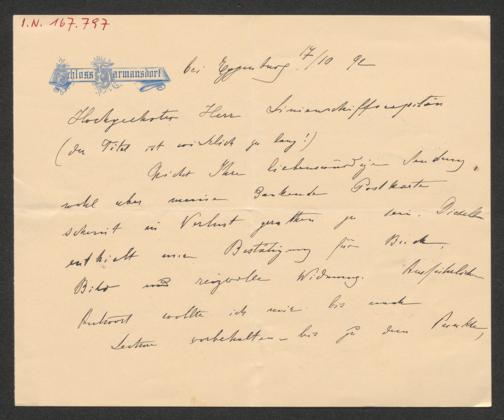 I.N. 167.797
Schloss Harmansdorf
bei Eggenburg 17/10 92
Hochgeehrter Herr Linienschiffscapitän
(der Titel ist wirklich zu lang!)
Nicht Ihre liebenswürdige Sendung,
wohl aber meine dankende Postkarte
scheint in Verlust gerathen zu sein. Dieselbe
enthielt meine Bestätigung für Buch,
Bild und reizvolle Widmung. Ausführliche
Antwort wollte ich mir bis nach
Lectüre vorbehalten – bis zu dem Punkte,